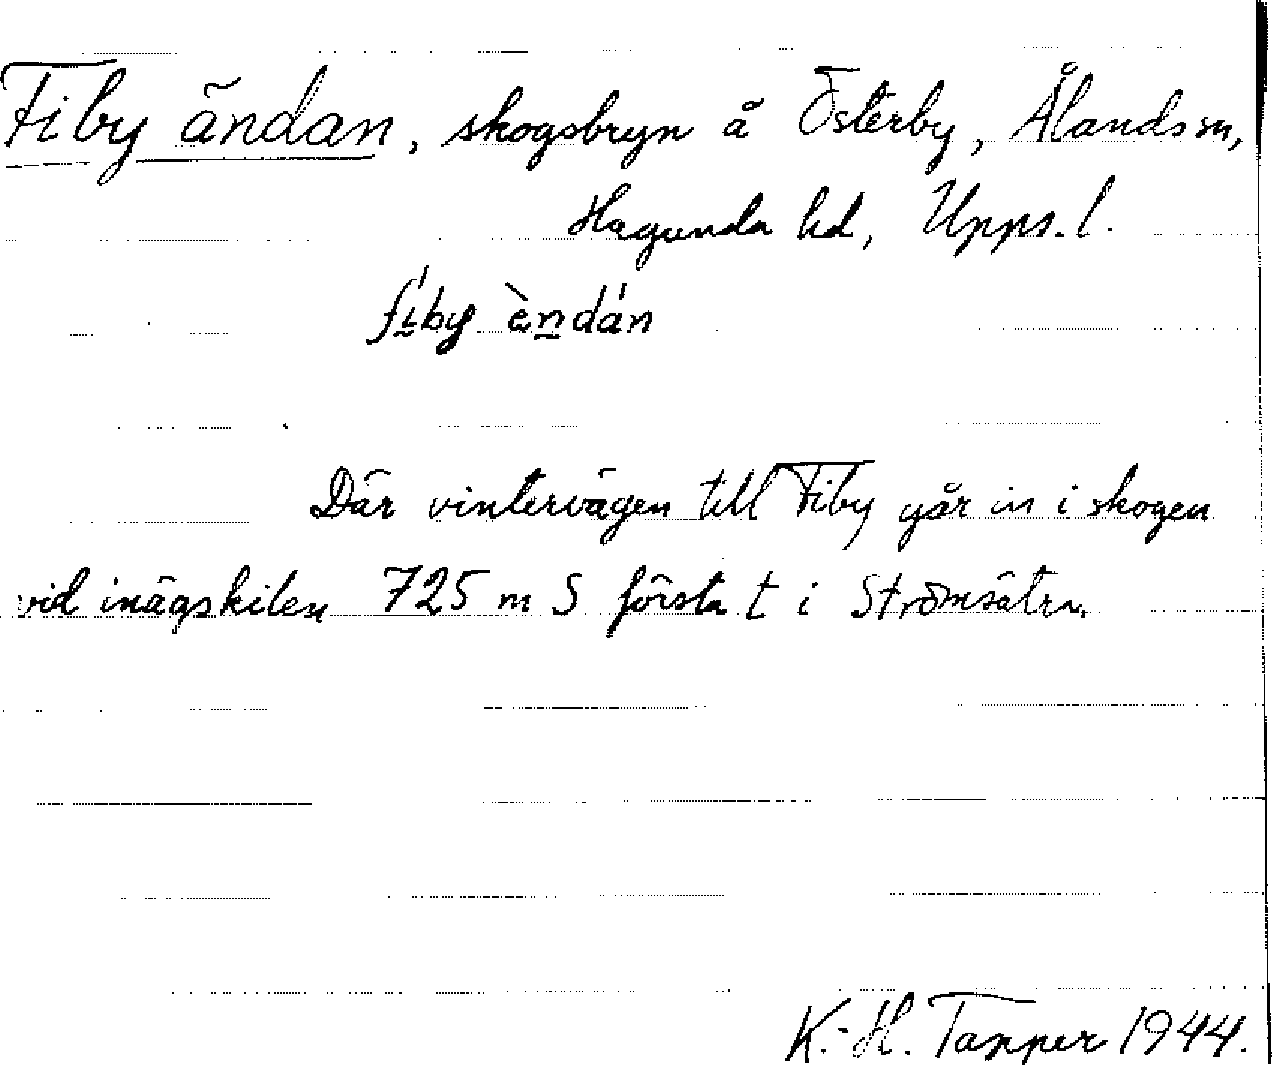 Fiby ändan, skogsbryn å Österby, Ålands sn,
Hagunda hd, Upps. l.
fí̱by èṉdán
Där vintervägen till Fiby går in i skogen
vid inägskilen 725 m S första t i Strömsätra.
K.-H. Tapper 1944.